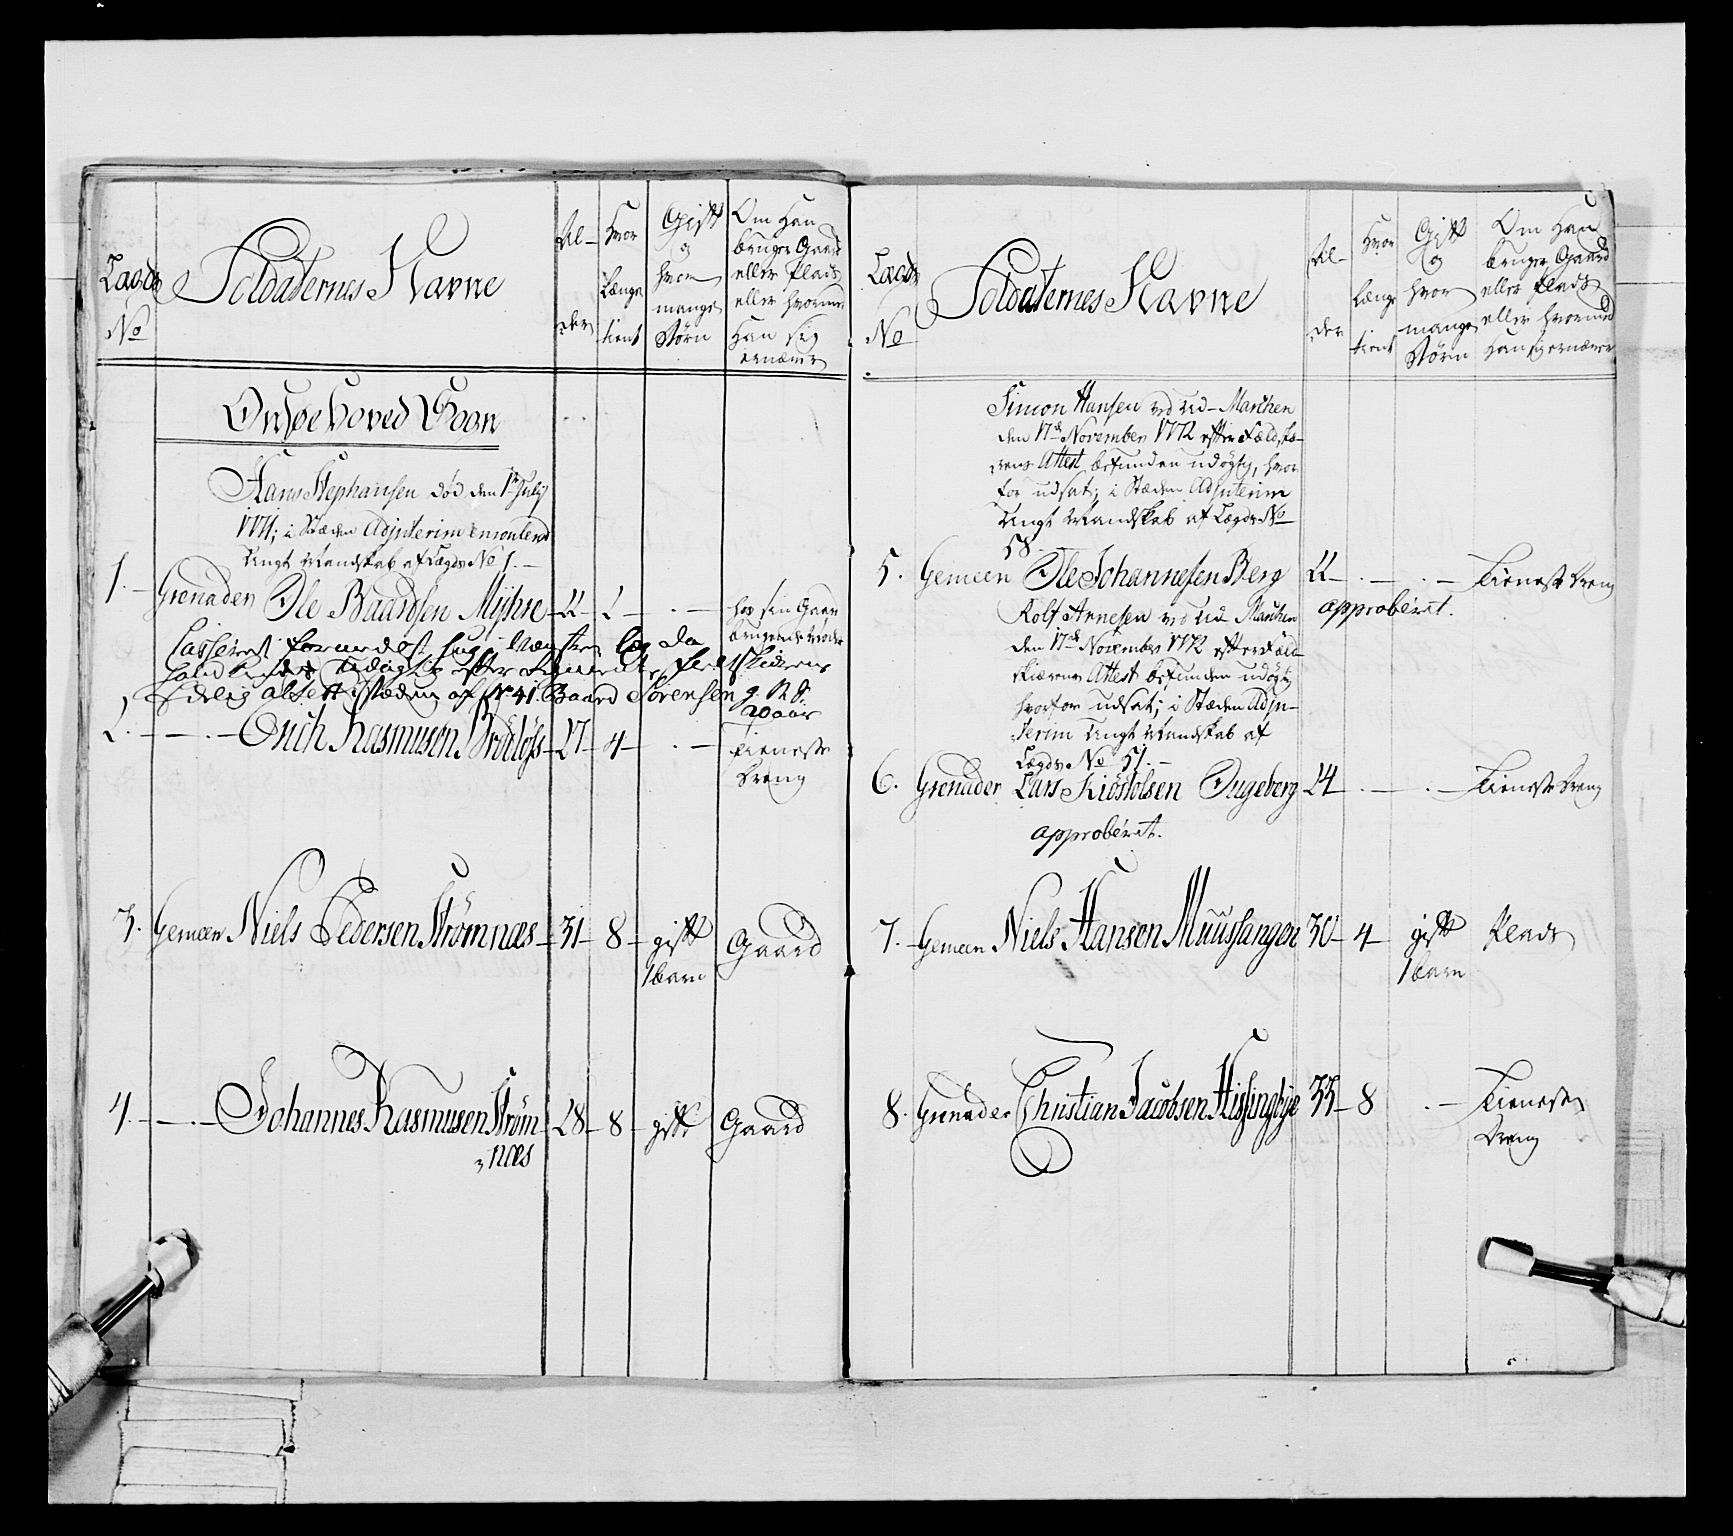 Lægds
No
Soldaternes Navne
Al-
der
Hvor
Længe
tient
Gift
og
hvor
mange
Børn
Om Han
bruger Gaard
eller Plads
eller hvormed
Han sig
ernærer
Hans Stephansen død den 1te July
1771; i Stæden Adjuterim
Ungt Mandskab af Lægds No 1.
1. Grenader Ole Baardsen Myhre 22 2 . hos sin Gaard
brugende Moder
Casseret formedelst hug i venstre læg da
efter Regiments feldtskiærens
i stæden af No 41 Baard Sørensen g. R S.
20 aar
2. — . — Erich Rasmusen Brødløss 27 4 . — Tieneste
Dreng
3. Gemeen Niels Pedersen Strømnæs 31 8 gift Gaard
1 barn
4. — . — Johannes Rasmusen Strøm- 28 8 gift Gaard
næs
Lægds
No
Soldaternes Navne
Al-
der
Hvor
længe
tient
Gift
og
hvor
mange
Børn
Om Han
bruger Gaard
eller Plads
eller hvormed
Han sig ernærer
Simon Hansen ved Ud-Marchen
den 17de November 1772 efter Feldskæ-
rens Attest befunden udygtig, hvor
for udsat; i Stæden Adjuterim
Ungt Mandskab af Lægds No
58
5. Gemeen Ole Johannesen Berg 22 . — . — Tieneste Dreng
approberet.
Rolf Arnesen ved Ud Marchen
den 17de November 1772 efter Feld-
skiærens Attest befunden udygtig
hvorfor udsat; i Stæden Adju-
terim Ungt Mandskab af
Lægds No 51.
6. Grenader Lars Kiøstolsen Ougeberg 24 . — . — Tieneste Dreng
approberet.
7. Gemeen Niels Hansen Muussangen 30 4 gift Plads
1 barn
8. Grenader Christian Jacobsen Hissingbye 33 8 . — Tieneste
Dreng